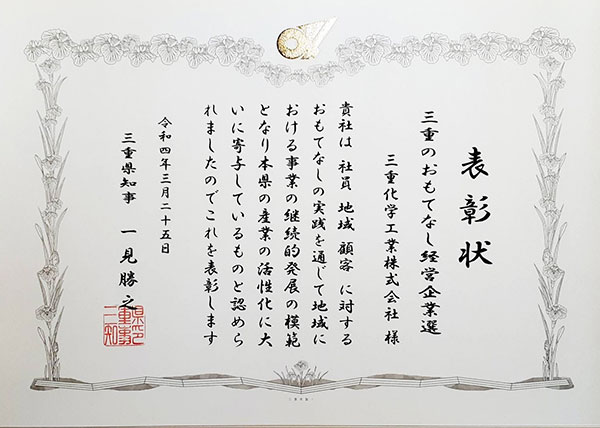 表彰状
三重のおもてなし経営企業選
三重化学工業株式会社 様
貴社は 社員 地域 顧客 に対する
おもてなしの実践を通じて地域に
おける事業の継続的発展の模範
となり本県の産業の活性化に大
いに寄与しているものと認めら
れましたのでこれを表彰します
令和四年三月二十五日
三重県知事 一見勝之